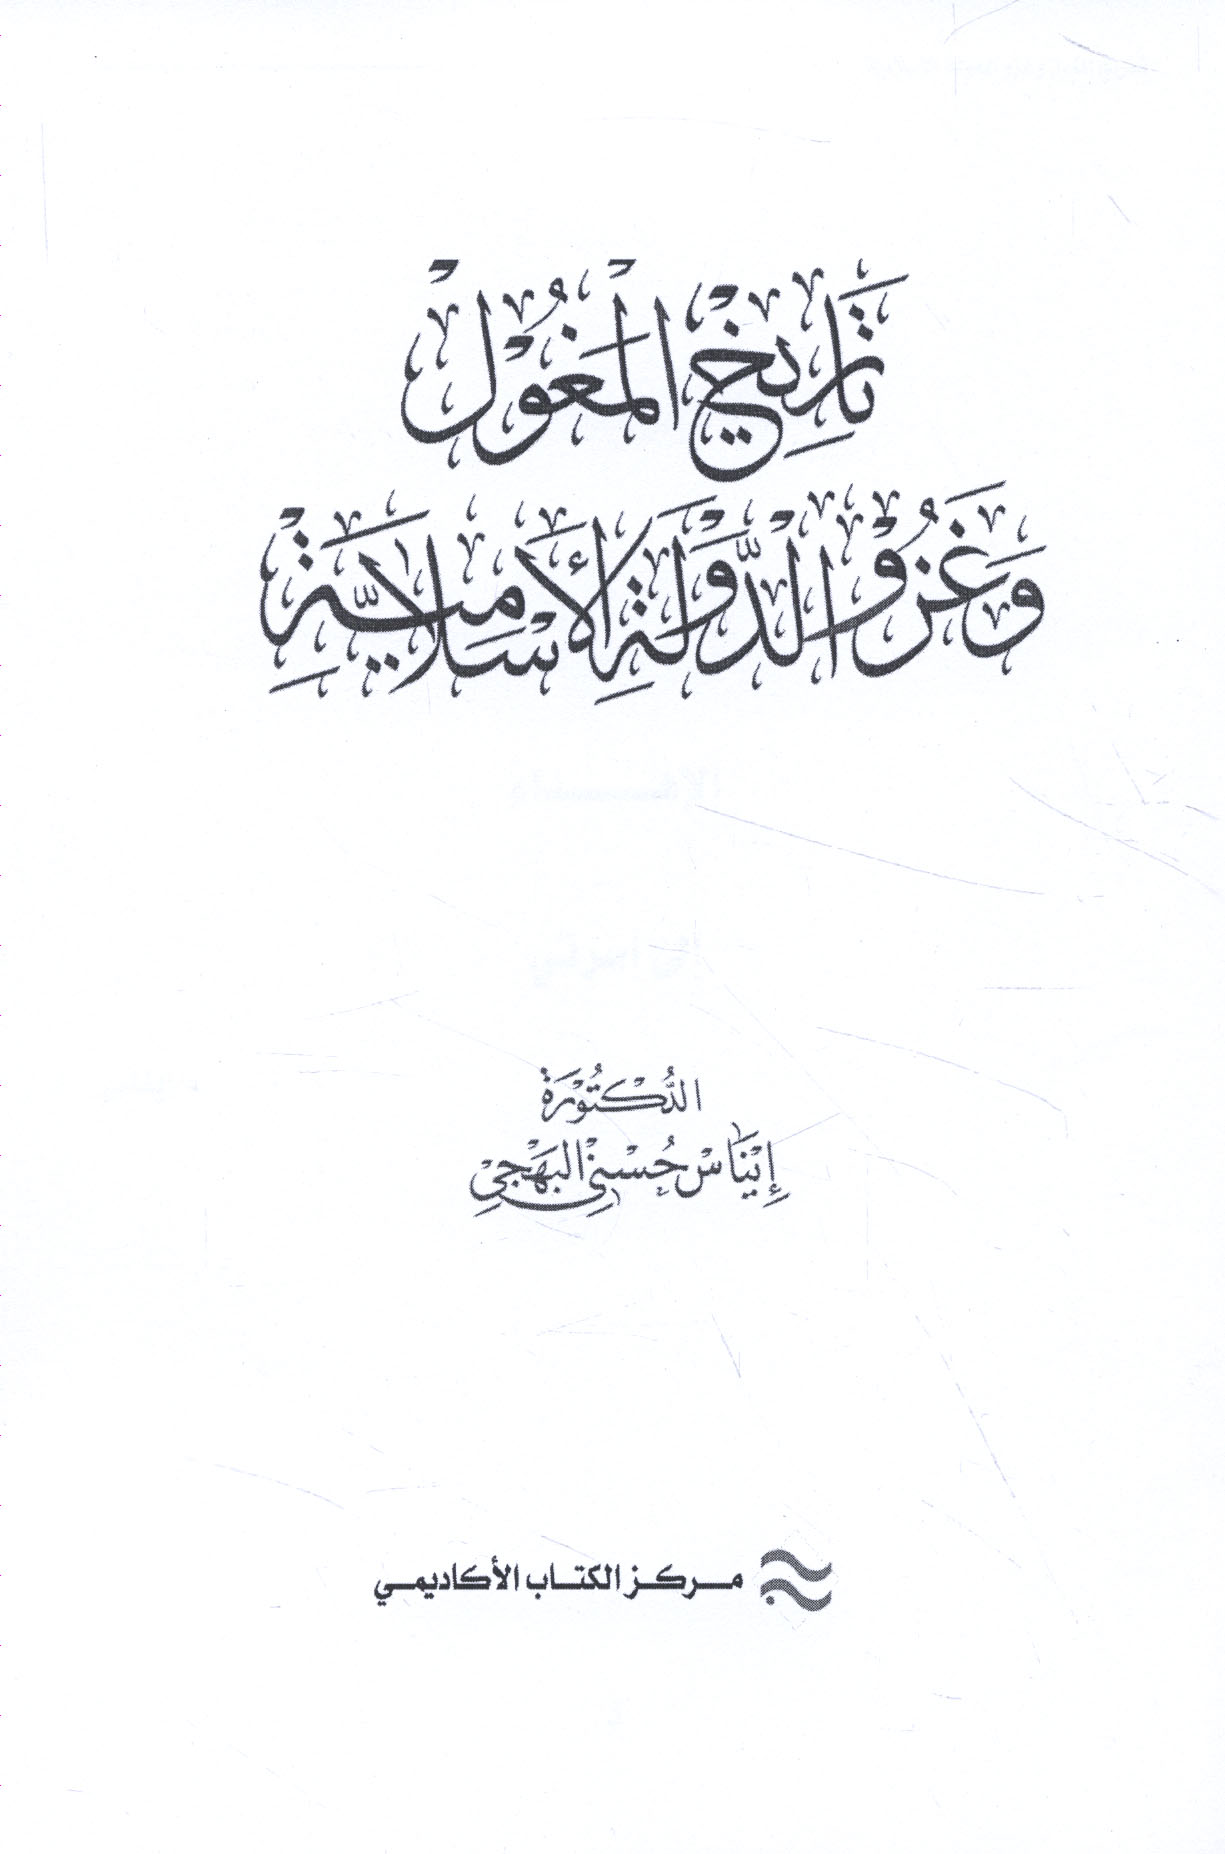 تاريخ المغول
وغزو الدولة الأسلامية
الدكتورة
إيناس حسني البهجي
مركز الكتاب الأكاديمي